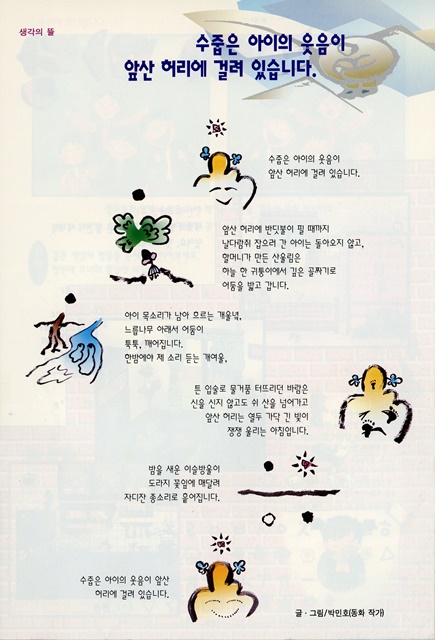 생각의 뜰
수줍은 아이의 웃음이
앞산 허리에 걸려 있습니다.
수줍은 아이의 웃음이
앞산 허리에 걸려 있습니다.
앞산 허리에 반딧불이 필 때까지
날다람쥐 잡으러 간 아이는 돌아오지 않고,
할머니가 만든 산울림은
하늘 한 귀퉁이에서 깊은 골짜기로
어둠을 밟고 갑니다.
아이 목소리가 남아 흐르는 개울녘,
느릅나무 아래서 어둠이
툭툭, 깨어집니다.
한밤에야 제 소리 듣는 개여울,
튼 입술로 물거품 터뜨리던 바람은
신을 신지 않고도 쉬 산을 넘어가고
앞산 허리는 열두 가닥 긴 빛이
쟁쟁 울리는 아침입니다.
밤을 새운 이슬방울이
도라지 꽃잎에 매달려
자디잔 종소리로 흩어집니다.
수줍은 아이의 웃음이 앞산
허리에 걸려 있습니다.
글 · 그림/박민호(동화 작가)